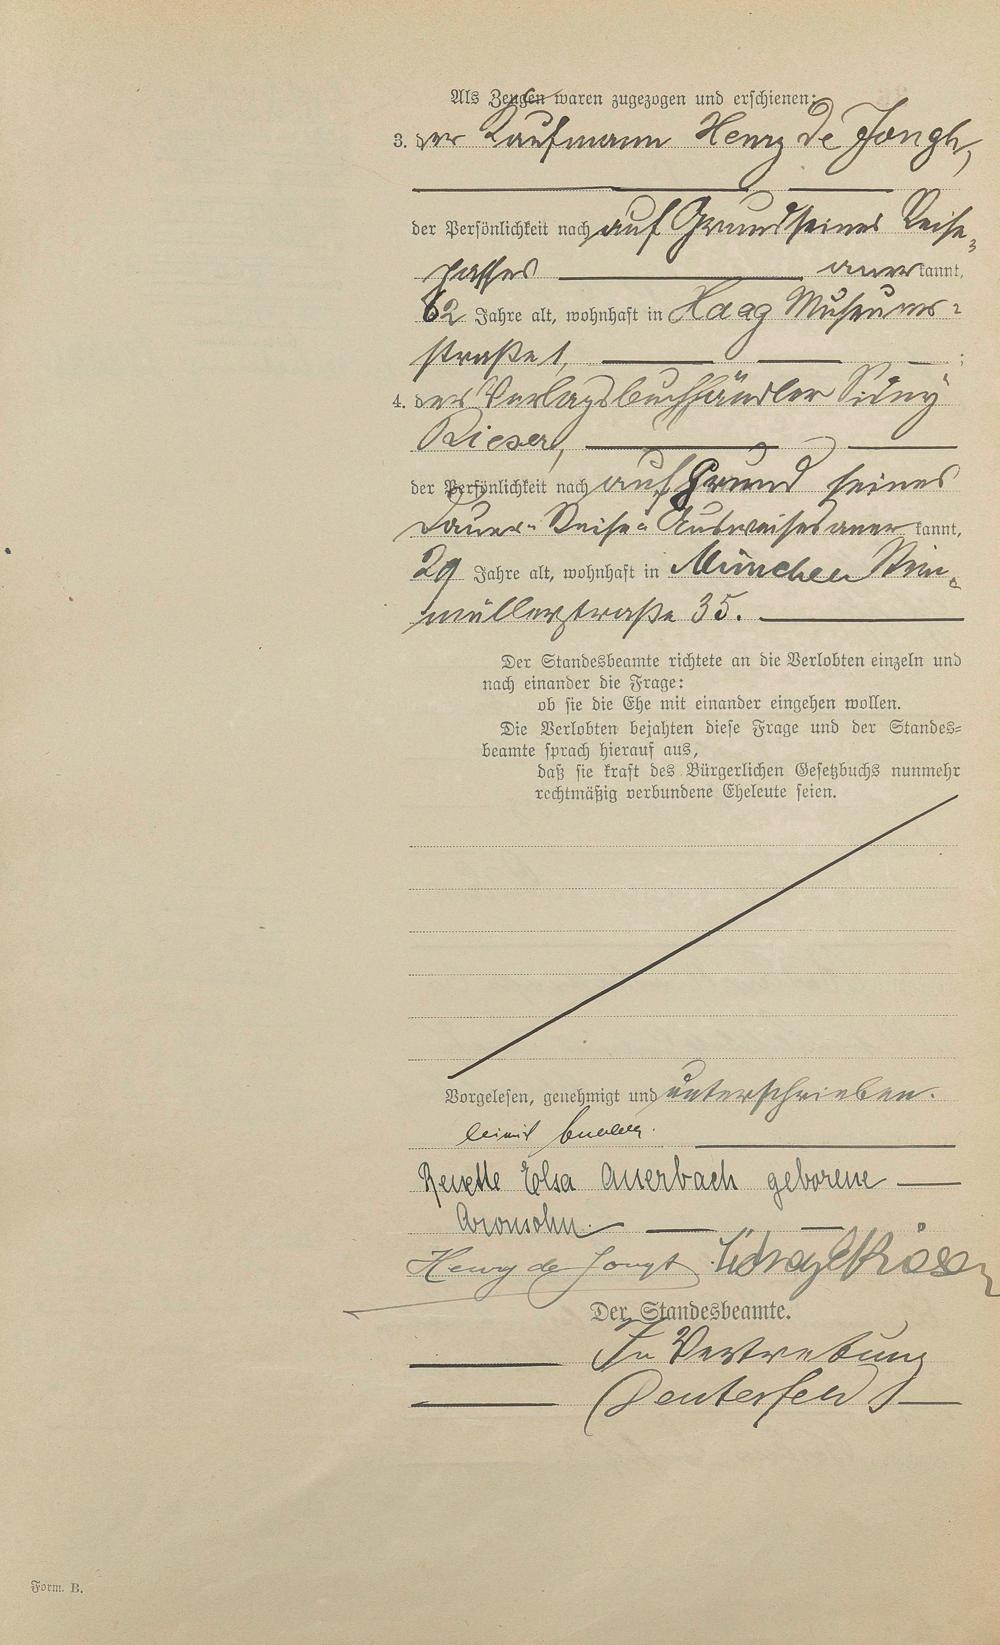 Als Zeugen waren zugezogen und erschienen:
3. der Kaufmann Henry de Jongh,
der Persönlichkeit nach auf Grund seines Reise-
passes anerkannt,
62 Jahre alt, wohnhaft in Haag Museums-
straße 1, ;
4. der Verlagsbuchhändler Sidney
Rieser,
der Persönlichkeit nach auf Grund seines
Dauer-Reise-Ausweises anerkannt,
29 Jahre alt, wohnhaft in München
müllerstraße 35.
Der Standesbeamte richtete an die Verlobten einzeln und
nach einander die Frage:
ob sie die Ehe mit einander eingehen wollen.
Die Verlobten bejahten diese Frage und der Standes-
beamte sprach hierauf aus,
daß sie kraft des Bürgerlichen Gesetzbuchs nunmehr
rechtmäßig verbundene Eheleute seien.
Vorgelesen, genehmigt und unterschrieben.
Renette Elsa Auerbach geborene
Aronsohn.
Henry de Jongh
Der Standesbeamte.
In Vertretung
Form. B.